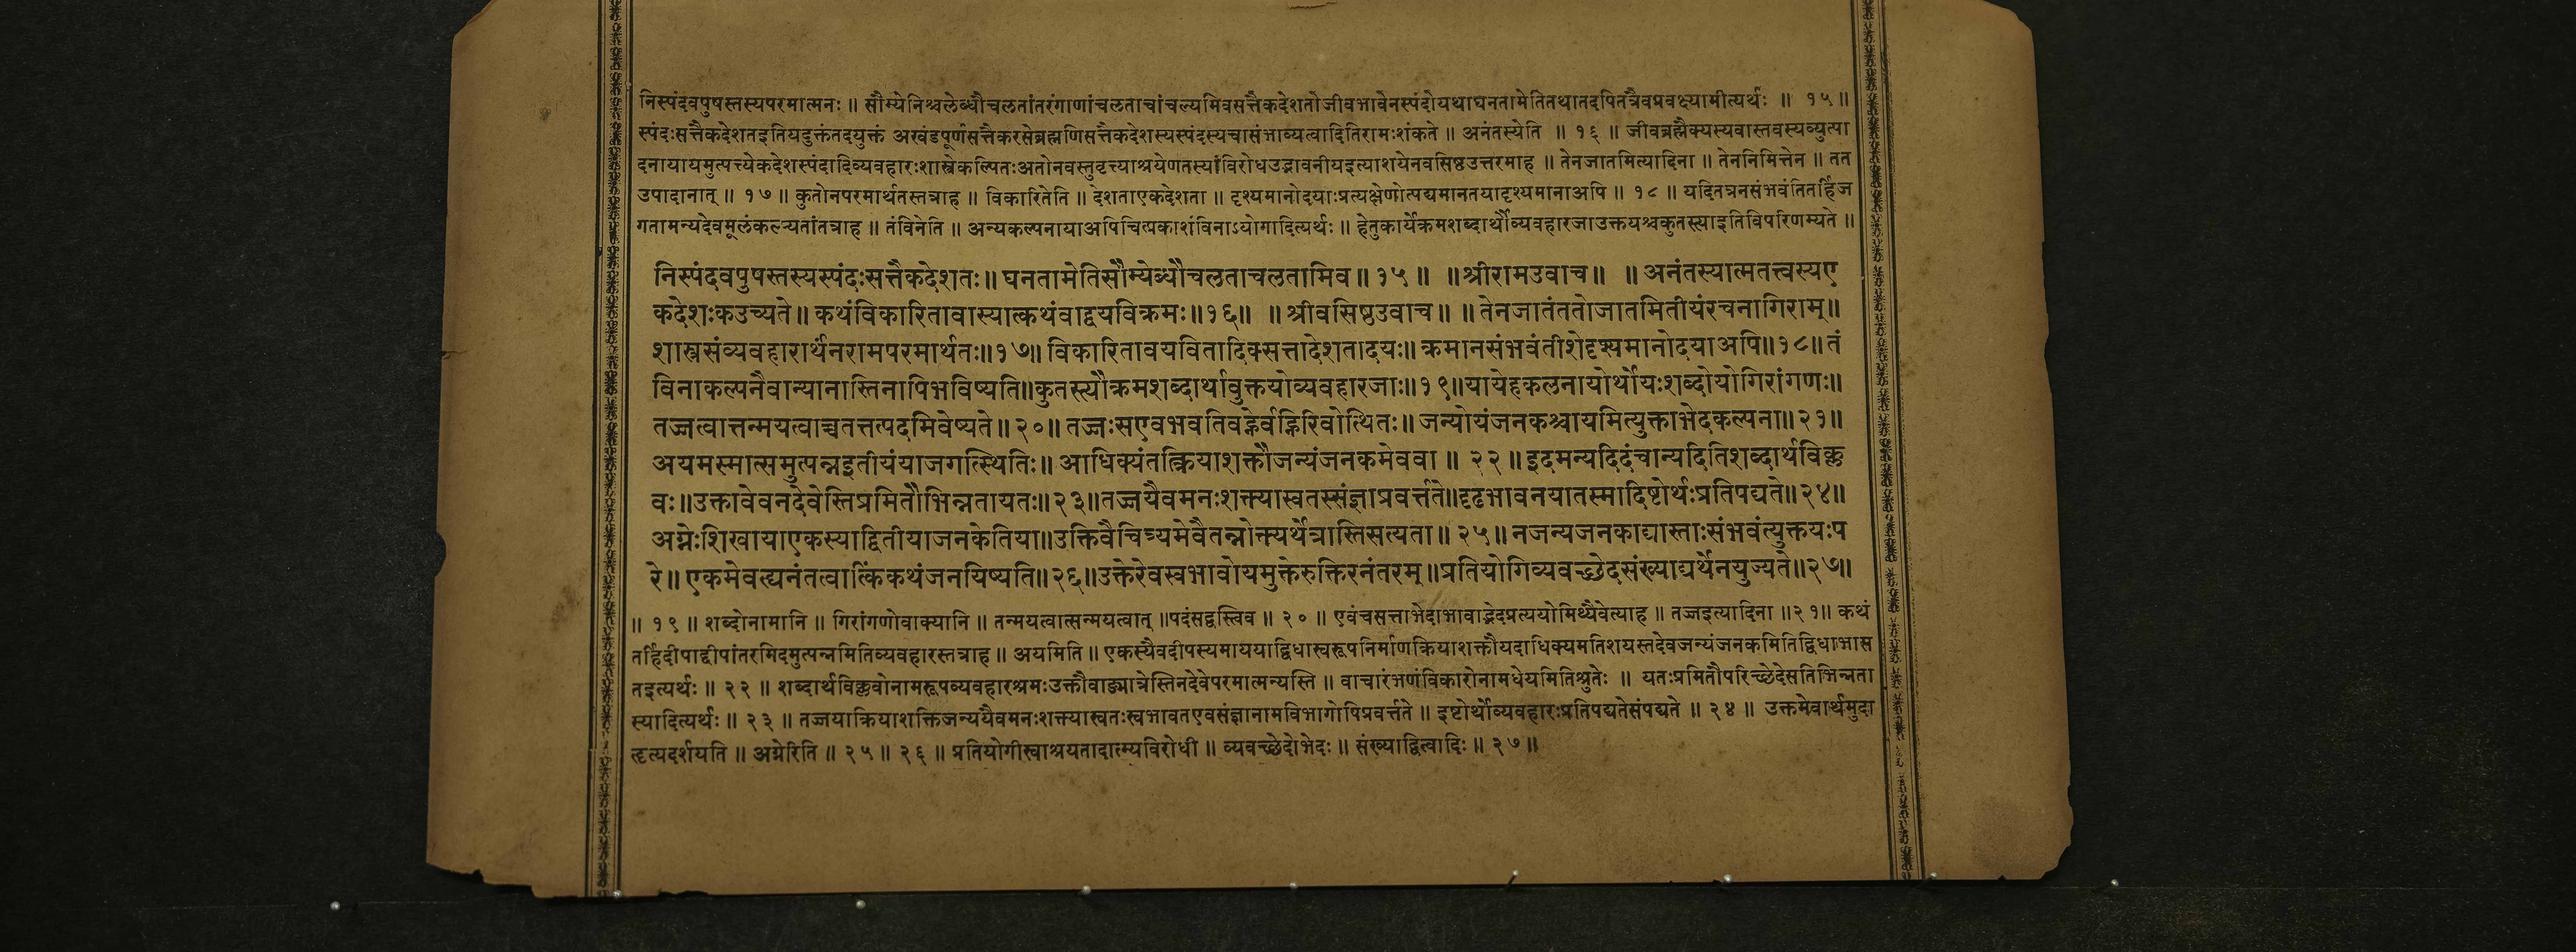 निस्पंदवपुषस्तस्यपरमात्मनः ॥ सौम्येनिश्चलेब्धौचलतांतरंगाणांचलताचांचल्यमिवसत्तैकदेशतोजीवभावेनस्पंदोयथाघनतामेतितथातदपितत्रैवप्रवक्ष्यामीत्यर्थः ॥ १५ ॥
स्पंदःसत्तैकदेशतइतियदुक्तंतदयुक्तं अखंडपूर्णसत्तैकरसेब्रह्मणिसत्तैकदेशस्यस्पंदस्यचासंभाव्यत्वादितिरामःशंकते ॥ अनंतस्येति ॥ १६ ॥ जीवब्रह्मैक्यस्यवास्तवस्यव्युत्पा
दनायायमुत्पत्त्येकदेशस्पंदादिव्यवहारःशास्त्रेकल्पितःअतोनवस्तुवृत्त्याश्रयेणतस्यांविरोधउद्भावनीयइत्याशयेनवसिष्ठउत्तरमाह ॥ तेनजातमित्यादिना ॥ तेननिमित्तेन ॥ तत
उपादानात् ॥ १७ ॥ कुतोनपरमार्थतस्तत्राह ॥ विकारितेति ॥ देशताएकदेशता ॥ दृश्यमानोदयाःप्रत्यक्षेणोत्पद्यमानतयादृश्यमानाअपि ॥ १८ ॥ यदितत्रनसंभवंतितर्हिज
गतामन्यदेवमूलंकल्प्यतांतत्राह ॥ तंविनेति ॥ अन्यकल्पनायाअपिचित्प्रकाशंविनाऽयोगादित्यर्थः ॥ हेतुकार्येक्रमशब्दार्थौव्यवहारजाउक्तयश्चकुतस्त्याइतिविपरिणम्यते ॥
निस्पंदवपुषस्तस्यस्पंदःसत्तैकदेशतः ॥ घनतामेतिसौम्येब्धौचलताचलतामिव ॥ १५ ॥ ॥ श्रीरामउवाच ॥ ॥ अनंतस्यात्मतत्त्वस्यए
कदेशःकउच्यते ॥ कथंविकारितावास्यात्कथंवाद्वयविक्रमः ॥ १६ ॥ ॥ श्रीवसिष्ठउवाच ॥ ॥ तेनजातंततोजातमितीयंरचनागिराम् ॥
शास्त्रसंव्यवहारार्थंनरामपरमार्थतः ॥ १७ ॥ विकारितावयवितादिक्सत्तादेशतादयः ॥ क्रमानसंभवंतीशेदृश्यमानोदयाअपि ॥ १८ ॥ तं
विनाकल्पनैवान्यानास्तिनापिभविष्यति ॥ कुतस्त्यौक्रमशब्दार्थावुक्तयोव्यवहारजाः ॥ १९ ॥ यायेहकलनायोर्थोयःशब्दोयोगिरांगणः ॥
तज्जत्वात्तन्मयत्वाच्चतत्तत्पदमिवेष्यते ॥ २० ॥ तज्जःसएवभवतिवह्नेर्वह्निरिवोत्थितः ॥ जन्योयंजनकश्चायमित्युक्ताभेदकल्पना ॥ २१ ॥
अयमस्मात्समुत्पन्नइतीयंयाजगत्स्थितिः ॥ आधिक्यंतत्क्रियाशक्तौजन्यंजनकमेववा ॥ २२ ॥ इदमन्यदिदंचान्यदितिशब्दार्थविक्ल
वः ॥ उक्तावेवनदेवेस्तिप्रमितौभिन्नतायतः ॥ २३ ॥ तज्जयैवमनःशक्त्यास्वतस्संज्ञाप्रवर्त्तते ॥ दृढभावनयातस्मादिष्टोर्थःप्रतिपद्यते ॥ २४ ॥
अग्नेःशिखायाएकस्याद्वितीयाजनकेतिया ॥ उक्तिवैचित्र्यमेवैतन्नोक्त्यर्थेत्रास्तिसत्यता ॥ २५ ॥ नजन्यजनकाद्यास्ताःसंभवंत्युक्तयःप
रे ॥ एकमेवत्द्यनंतत्वात्किंकथंजनयिष्यति ॥ २६ ॥ उक्तेरेवस्वभावोयमुक्तेरुक्तिरनंतरम् ॥ प्रतियोगिव्यवच्छेदसंख्याद्यर्थेनयुज्यते ॥ २७ ॥
॥ १९ ॥ शब्दोनामानि ॥ गिरांगणोवाक्यानि ॥ तन्मयत्वात्सन्मयत्वात् ॥ पदंसद्वस्त्विव ॥ २० ॥ एवंचसत्ताभेदाभावाद्भेदप्रत्ययोमिथ्यैवेत्याह ॥ तज्जइत्यादिना ॥ २१ ॥ कथं
तर्हिदीपाद्दीपांतरमिदमुत्पन्नमितिव्यवहारस्तत्राह ॥ अयमिति ॥ एकस्यैवदीपस्यमाययाद्विधास्वरूपनिर्माणक्रियाशक्तौयदाधिक्यमतिशयस्तदेवजन्यंजनकमितिद्विधाभास
तइत्यर्थः ॥ २२ ॥ शब्दार्थविक्लवोनामरूपव्यवहारभ्रमःउक्तौवाङ्मात्रेस्तिनदेवेपरमात्मन्यस्ति ॥ वाचारंभणंविकारोनामधेयमितिश्रुतेः ॥ यतःप्रमितौपरिच्छेदेसतिभिन्नता
स्यादित्यर्थः ॥ २३ ॥ तज्जयाक्रियाशक्तिजन्ययैवमनःशक्त्यास्वतःस्वभावतएवसंज्ञानामविभागोपिप्रवर्त्तते ॥ इष्टोर्थोव्यवहारःप्रतिपद्यतेसंपद्यते ॥ २४ ॥ उक्तमेवार्थमुदा
त्हृत्यदर्शयति ॥ अग्नेरिति ॥ २५ ॥ २६ ॥ प्रतियोगीस्वाश्रयतादात्म्यविरोधी ॥ व्यवच्छेदोभेदः ॥ संख्याद्वित्वादिः ॥ २७ ॥